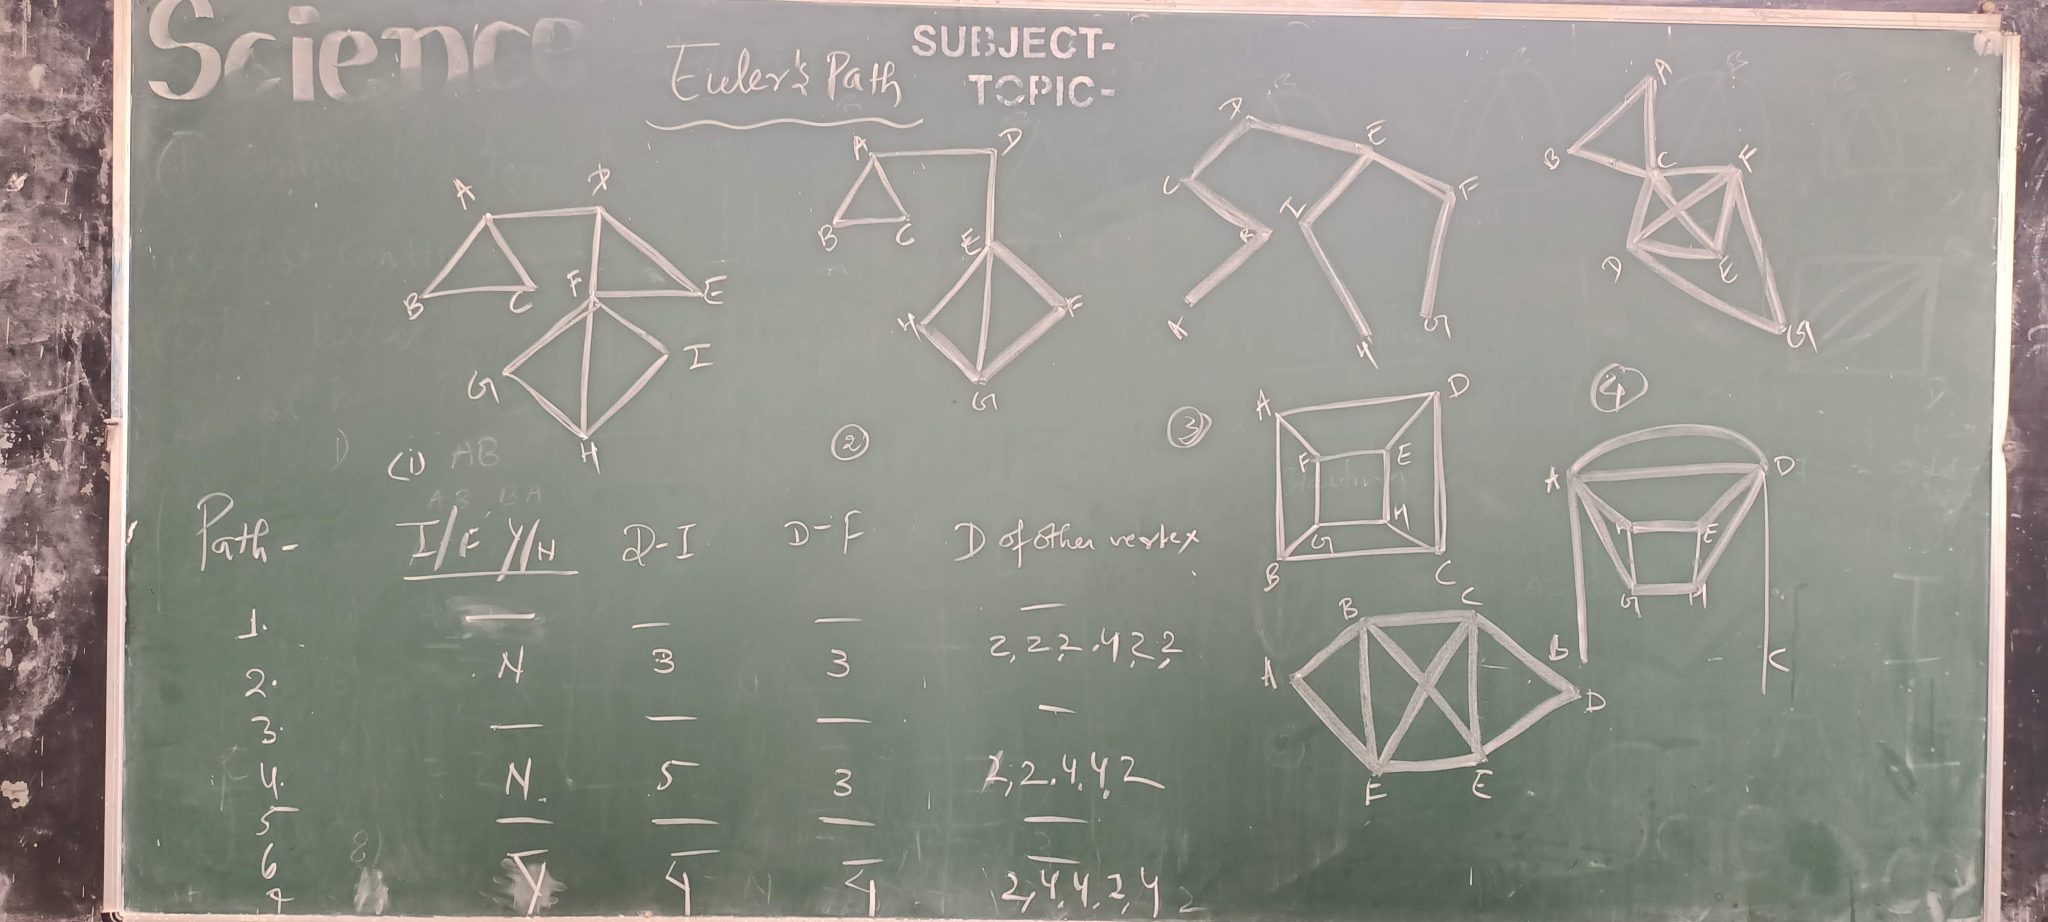 Science
SUBJECT-
Euler's Path
TOPIC-
A D
B C F E
G I
H
(1) AB
A D
B C E
H F
G
2
D E
C I F
B
A H G
3
A
B C F
D E
G
4
A D
F E
G H
B C
A D
F E
G H
B C
B C
A D
F E
Path - I/F Y/N D-I D-F D of other vertex
1. — — — —
2. N 3 3 2, 2 2 2, 4 2 2
3. — — — —
4. N 5 3 2, 2, 4, 4 2
5 — — — —
6 — — — —
7 Y 4 4 2, 4, 4, 2, 4 2